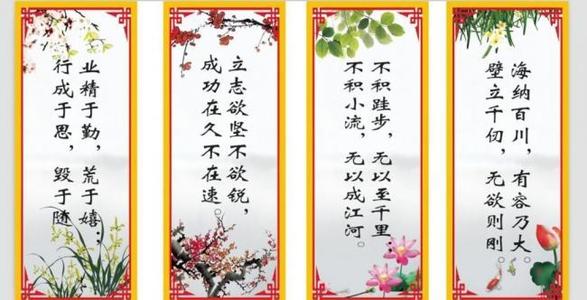 业精于勤，荒于嬉；
行成于思，毁于随
立志欲坚不欲锐，
成功在久不在速。
不积跬步，无以至千里；
不积小流，无以成江河。
海纳百川，有容乃大。
壁立千仞，无欲则刚。